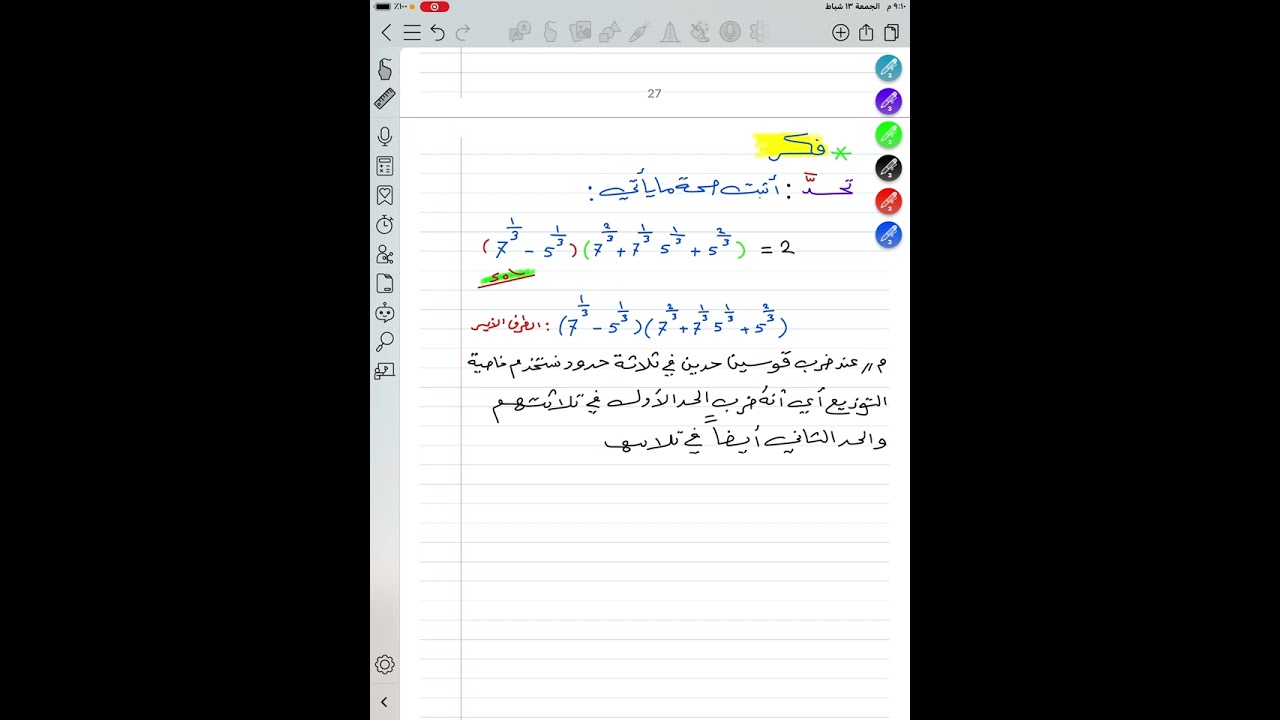 ٩:١٠ م الجمعة ١٣ شباط
٪١٠٠
27
* فكر
تحدَّ : أثبت صحة ما يأتي :
(7^{1/3} - 5^{1/3}) (7^{2/3} + 7^{1/3} 5^{1/3} + 5^{2/3}) = 2
sol
الطرف الأيسر : (7^{1/3} - 5^{1/3}) (7^{2/3} + 7^{1/3} 5^{1/3} + 5^{2/3})
م// عند ضرب قوسين حدين في ثلاثة حدود نستخدم خاصية
التوزيع أي أنهُ ضرب الحد الأول في ثلاثتهم
والحد الثاني أيضاً في
3
3
3
3
3
3